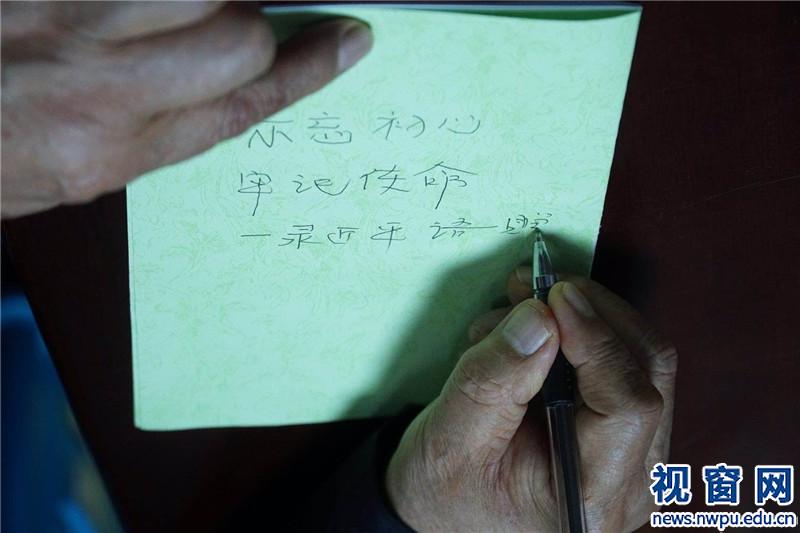 不忘初心
牢记使命
—录近平语—
视窗网
news.nwpu.edu.cn